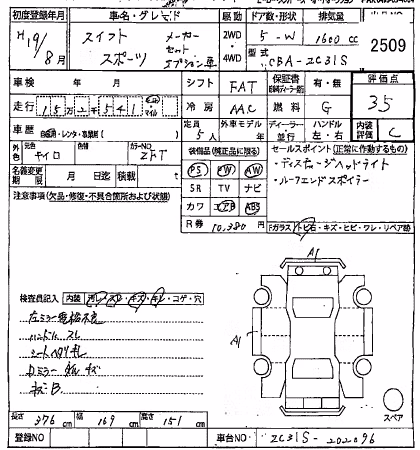 初度登録年月 車名・グレード 駆動 ドア数・形状 排気量
H19/8月 スイフト スポーツ メーカーセットオプション車 2WD・4WD 5-W 1600cc 2509
型式 CBA-ZC31S
車検 年 月 シフト FAT 保証書 有・無 評価点
走行 冷房 AAC 燃料 G 3.5
車歴 自家・レンタ・事業用( ) 定員 5人 外車モデル ディーラー・並行 ハンドル 左・右 内装評価 C
外色 元色 キイロ 色 カラーNO ZFT 装備品(純正品に限る) セールスポイント(正常に作動するもの)
名義変更期限 月 日迄 積載 t PS PW AW ・ディスチャージヘッドライト
SR TV ナビ ・ルーフエンドスポイラー
注意事項(欠品・修復・不具合箇所および状態) カワ エアB ABS
R券 10,380円 Fガラス トビ石・キズ・ヒビ・ワレ・リペア跡
A1
A1
検査員記入 内装 汚レ・スレ・キズ・キレ・コゲ・穴
左ミラー格納不良
ハンドルスレ
シートヘタリ
キズB
スペア
長さ 376cm 幅 169cm 高さ 151cm
登録NO 車台NO ZC31S-202096